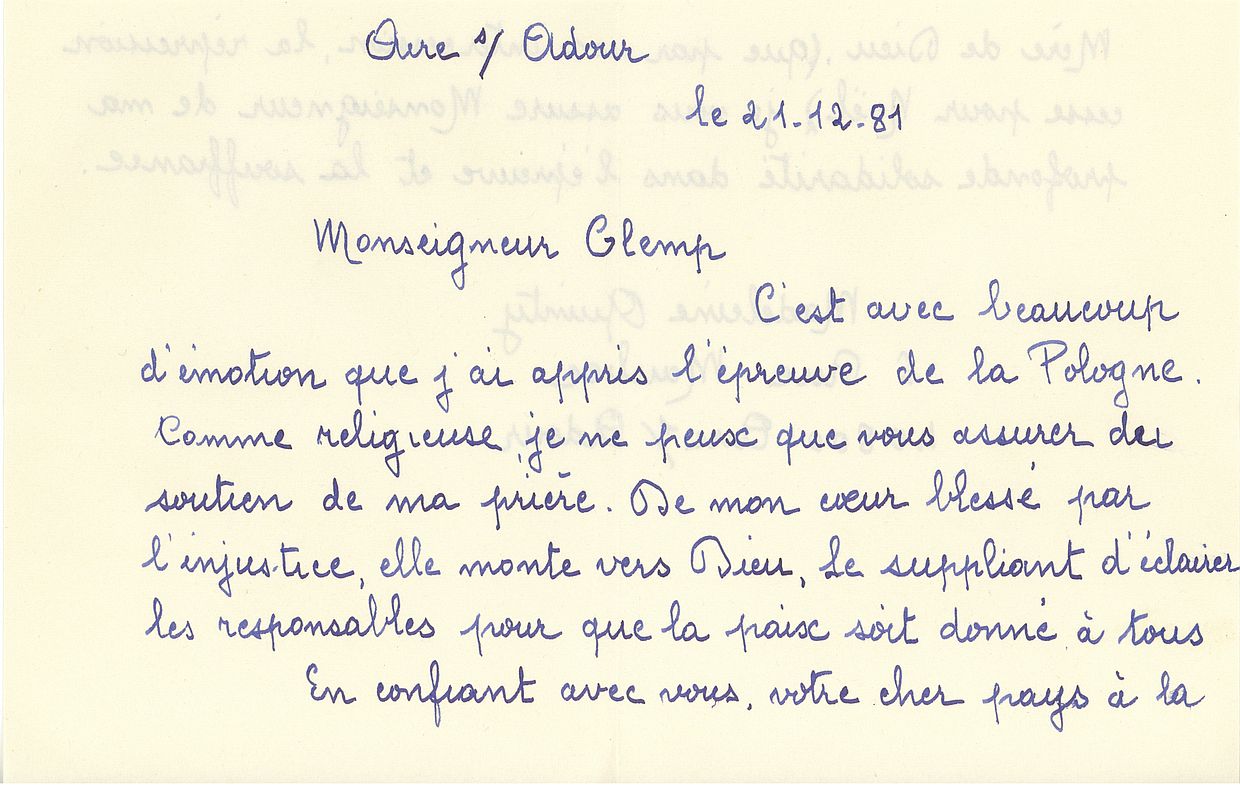 Aire s/ Adour
le 21-12-81
Monseigneur Glemp
C'est avec beaucoup
d'émotion que j'ai appris l'épreuve de la Pologne.
Comme religieuse, je ne peux que vous assurer du
soutien de ma prière. De mon cœur blessé par
l'injustice, elle monte vers Dieu, Le suppliant d'éclairer
les responsables pour que la paix soit donné à tous
En confiant avec vous, votre cher pays à la